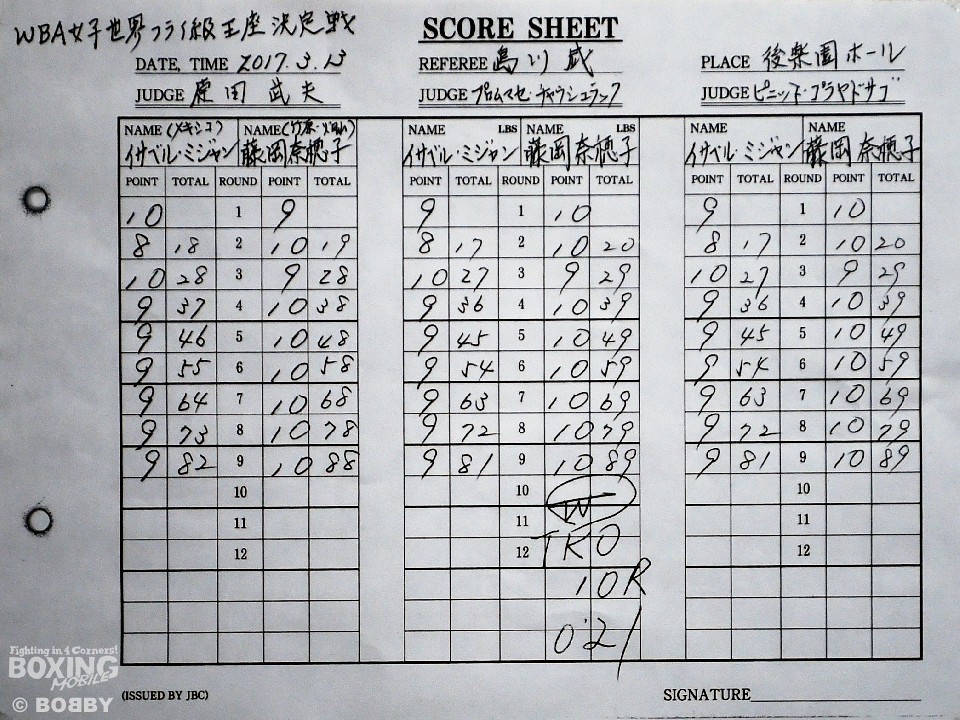 WBA女子世界フライ級王座決定戦
SCORE SHEET
DATE, TIME 2017.3.13 REFEREE 島川 威 PLACE 後楽園ホール
JUDGE 原田 武夫 JUDGE プロムマセ・チャウシュラック JUDGE ピニット・プラヤドサブ
NAME (メキシコ) NAME (竹原・畑山) NAME LBS NAME LBS NAME NAME
イサベル・ミジャン 藤岡奈穂子 イサベル・ミジャン 藤岡奈穂子 イサベル・ミジャン 藤岡奈穂子
POINT TOTAL ROUND POINT TOTAL POINT TOTAL ROUND POINT TOTAL POINT TOTAL ROUND POINT TOTAL
10 1 9 9 1 10 9 1 10
8 18 2 10 19 8 17 2 10 20 8 17 2 10 20
10 28 3 9 28 10 27 3 9 29 10 27 3 9 29
9 37 4 10 38 9 36 4 10 39 9 36 4 10 39
9 46 5 10 48 9 45 5 10 49 9 45 5 10 49
9 55 6 10 58 9 54 6 10 59 9 54 6 10 59
9 64 7 10 68 9 63 7 10 69 9 63 7 10 69
9 73 8 10 78 9 72 8 10 79 9 72 8 10 79
9 82 9 10 88 9 81 9 10 89 9 81 9 10 89
10 10 W 10
11 11 11
12 12 TKO 12
10R
0:21
Fighting in 4 Corners!
BOXING
MOBILE
© BOBBY
(ISSUED BY JBC) SIGNATURE